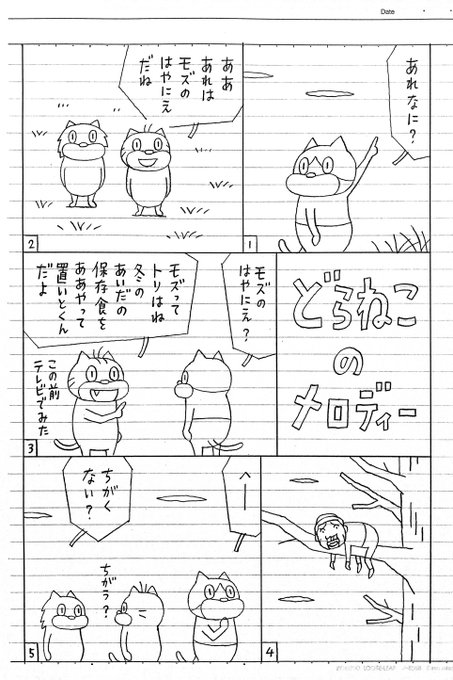 Date
あれなに？
ああ
あれは
モズの
はやにえ
だね
1
2
どらねこ
の
メロディー
モズの
はやにえ？
モズって
トリはね
冬の
あいだの
保存食を
ああやって
置いとくん
だよ
この前
テレビでみた
3
4
へー
ちがく
ない？
ちがう？
5